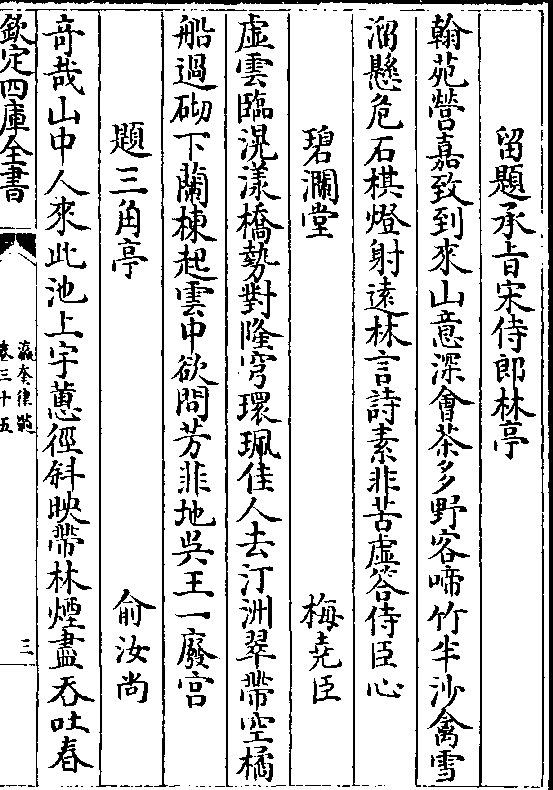 留題承旨宋侍郎林亭
翰苑營嘉致到來山意深會茶多野客啼竹半沙禽雪
溜懸危石棋燈射遠林言詩素非苦虛答侍臣心
碧瀾堂　梅堯臣
虛雲臨滉漾橋勢對隆穹環珮佳人去汀洲翠帶空橘
船過砌下蘭棟起雲中欲問芳菲地吳王一廢宮
題三角亭　俞汝尚
竒哉山中人來此池上宇蔥徑斜映帶林煙盡吞吐春
欽定四庫全書
瀛奎律髓
卷三十五
三